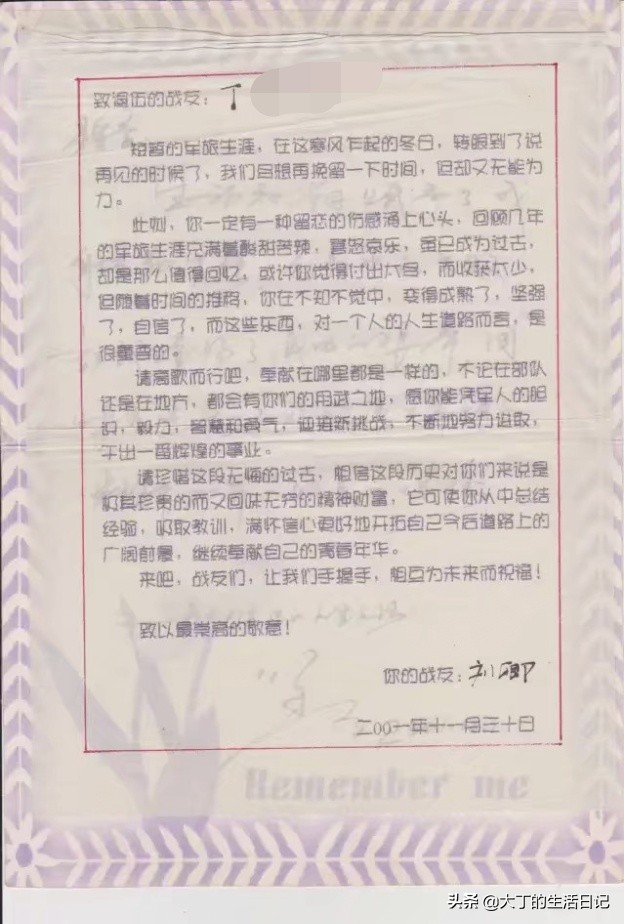 致退伍的战友：丁
短暂的军旅生涯，在这寒风乍起的冬日，转眼到了说
再见的时候了，我们自想再挽留一下时间，但却又无能为
力。
此刻，你一定有一种留恋的伤感涌上心头，回顾几年
的军旅生涯充满着酸甜苦辣，喜怒哀乐，虽已成为过去，
却是那么值得回忆，或许你觉得付出太多，而收获太少，
但随着时间的推移，你在不知不觉中，变得成熟了，坚强
了，自信了，而这些东西，对一个人的人生道路而言，是
很重要的。
请高歌而行吧，奉献在哪里都是一样的，不论在部队
还是在地方，都会有你们的用武之地，愿你能凭军人的胆
识，毅力，智慧和勇气，迎接新挑战，不断地努力进取，
干出一番辉煌的事业。
请珍惜这段无悔的过去，相信这段历史对你们来说是
极其珍贵的而又回味无穷的精神财富，它可使你从中总结
经验，吸取教训，满怀信心更好地开拓自己今后道路上的
广阔前景，继续奉献自己的青春年华。
来吧，战友们，让我们手握手，相互为未来而祝福！
致以最崇高的敬意！
你的战友：刘
二00一年十一月三十日
Remember me
头条 @大丁的生活日记